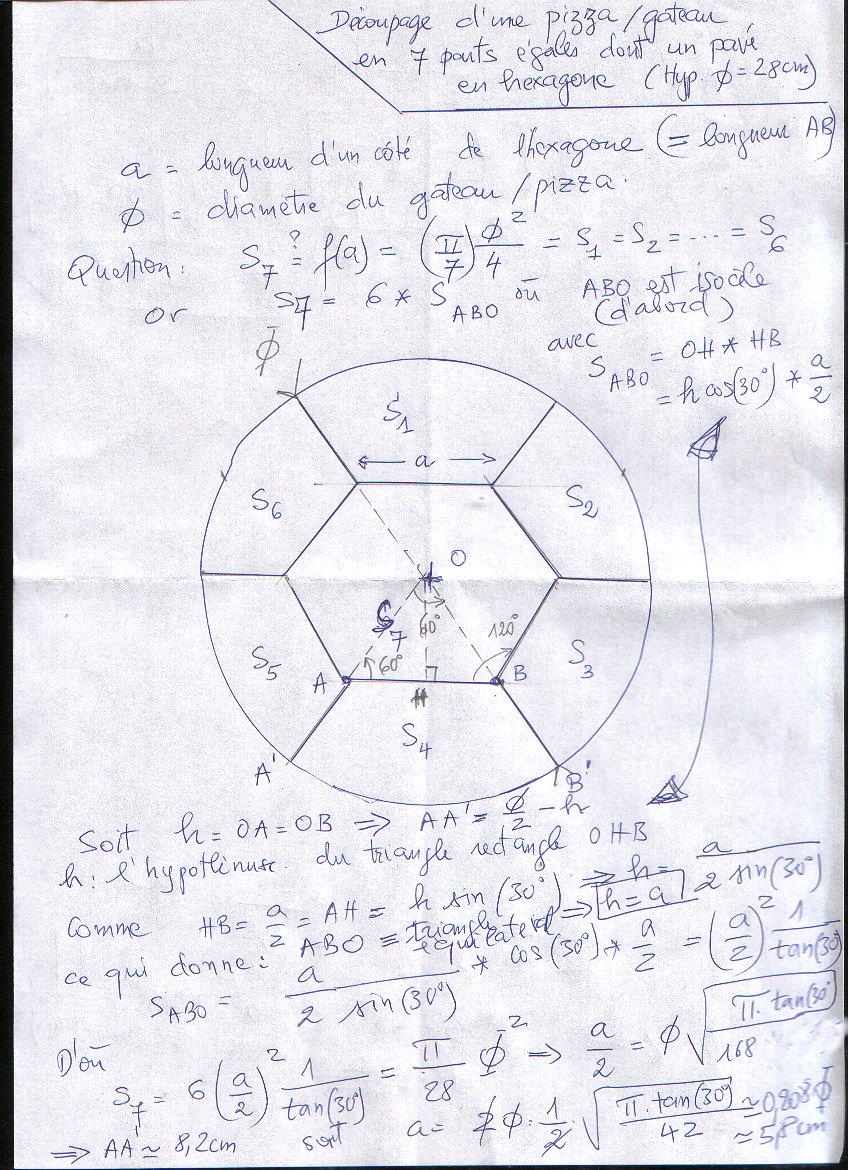 Découpage d'une pizza/gateau
en 7 parts égales dont un pavé
en hexagone (Hyp. ϕ = 28cm)
a = longueur d'un côté de l'hexagone (= longueur AB)
ϕ = diamètre du gateau/pizza.
Question: S₇ ≟ f(a) = (π/7) ϕ²/4 = S₁ = S₂ = ... = S₆
or S₇ = 6 * S_ABO où ABO est isocèle
(d'abord)
avec S_ABO = OH * HB
= h cos(30°) * a/2
ϕ
S₁
a
S₆
S₂
O
S₇
60°
120°
S₅
60°
S₃
A
B
H
S₄
A'
B'
Soit h = OA = OB ⇒ AA' = ϕ/2 - h
h: l'hypoténuse du triangle rectangle OHB
Comme HB = a/2 = AH = h sin(30°) ⇒ h = a / 2 sin(30°)
ABO ≡ triangle équilatéral ⇒ h = a
ce qui donne:
S_ABO = a / 2 sin(30°) * cos(30°) * a/2 = (a/2)² 1/tan(30)
D'où
S₇ = 6 (a/2)² 1/tan(30°) = π/28 ϕ² ⇒ a/2 = ϕ √(π.tan(30°)/168)
soit a = 2ϕ.1/2 √(π.tan(30°)/42) ≃ 0,208 ϕ
≃ 5,8cm
⇒ AA' ≃ 8,2cm